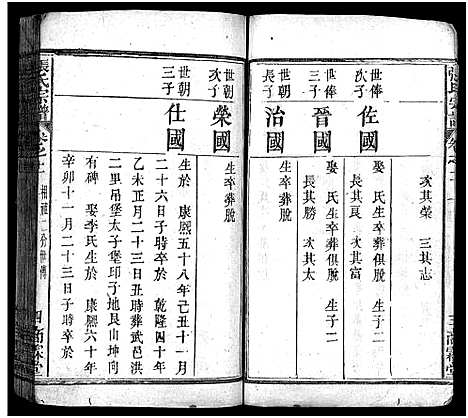 張氏宗譜
次其榮 三其志
世俸次子
佐國
娶 氏生卒葬俱脫 生子二
長其良 次其富
世俸三子
晉國
娶 氏生卒葬俱脫 生子二
長其勝 次其太
世朝長子
治國
世朝次子
榮國
生卒葬脫
世朝三子
仕國
生於 康熙五十八年己丑十一月
二十六日子時卒於 乾隆四十年
乙未正月二十三日丑時葬武邑洪
二里吊堡太子堡印子地艮山坤向
有碑 娶李氏生於 康熙六十年
辛卯十一月二十三日子時卒於
張氏宗譜
卷之二
四